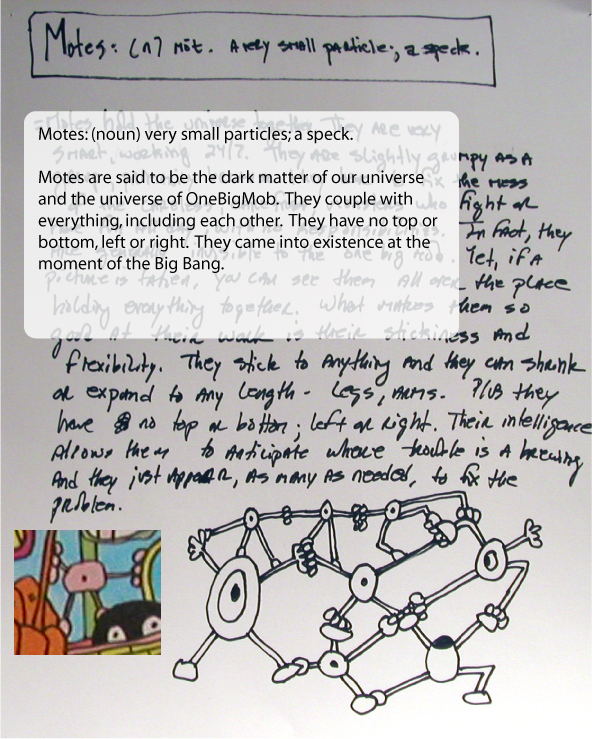 Motes: (n) mōt. A very small particle; a speck.
Motes: (noun) very small particles; a speck.
Motes are said to be the dark matter of our universe
and the universe of OneBigMob. They couple with
everything, including each other. They have no top or
bottom, left or right. They came into existence at the
moment of the Big Bang.
Motes hold the universe together. They are very
smart, working 24/7. They are slightly grumpy as a
fix the mess
fight or
In fact, they
invisible to the one big mob. Yet, if a
picture is taken, you can see them all over the place
holding everything together. What makes them so
good at their work is their stickiness and
flexibility. They stick to anything and they can shrink
or expand to any length - legs, arms. they
have no top or bottom; left or right. Their intelligence
allows them to anticipate where trouble is a brewing
and they just appear, as many as needed, to fix the
problem.